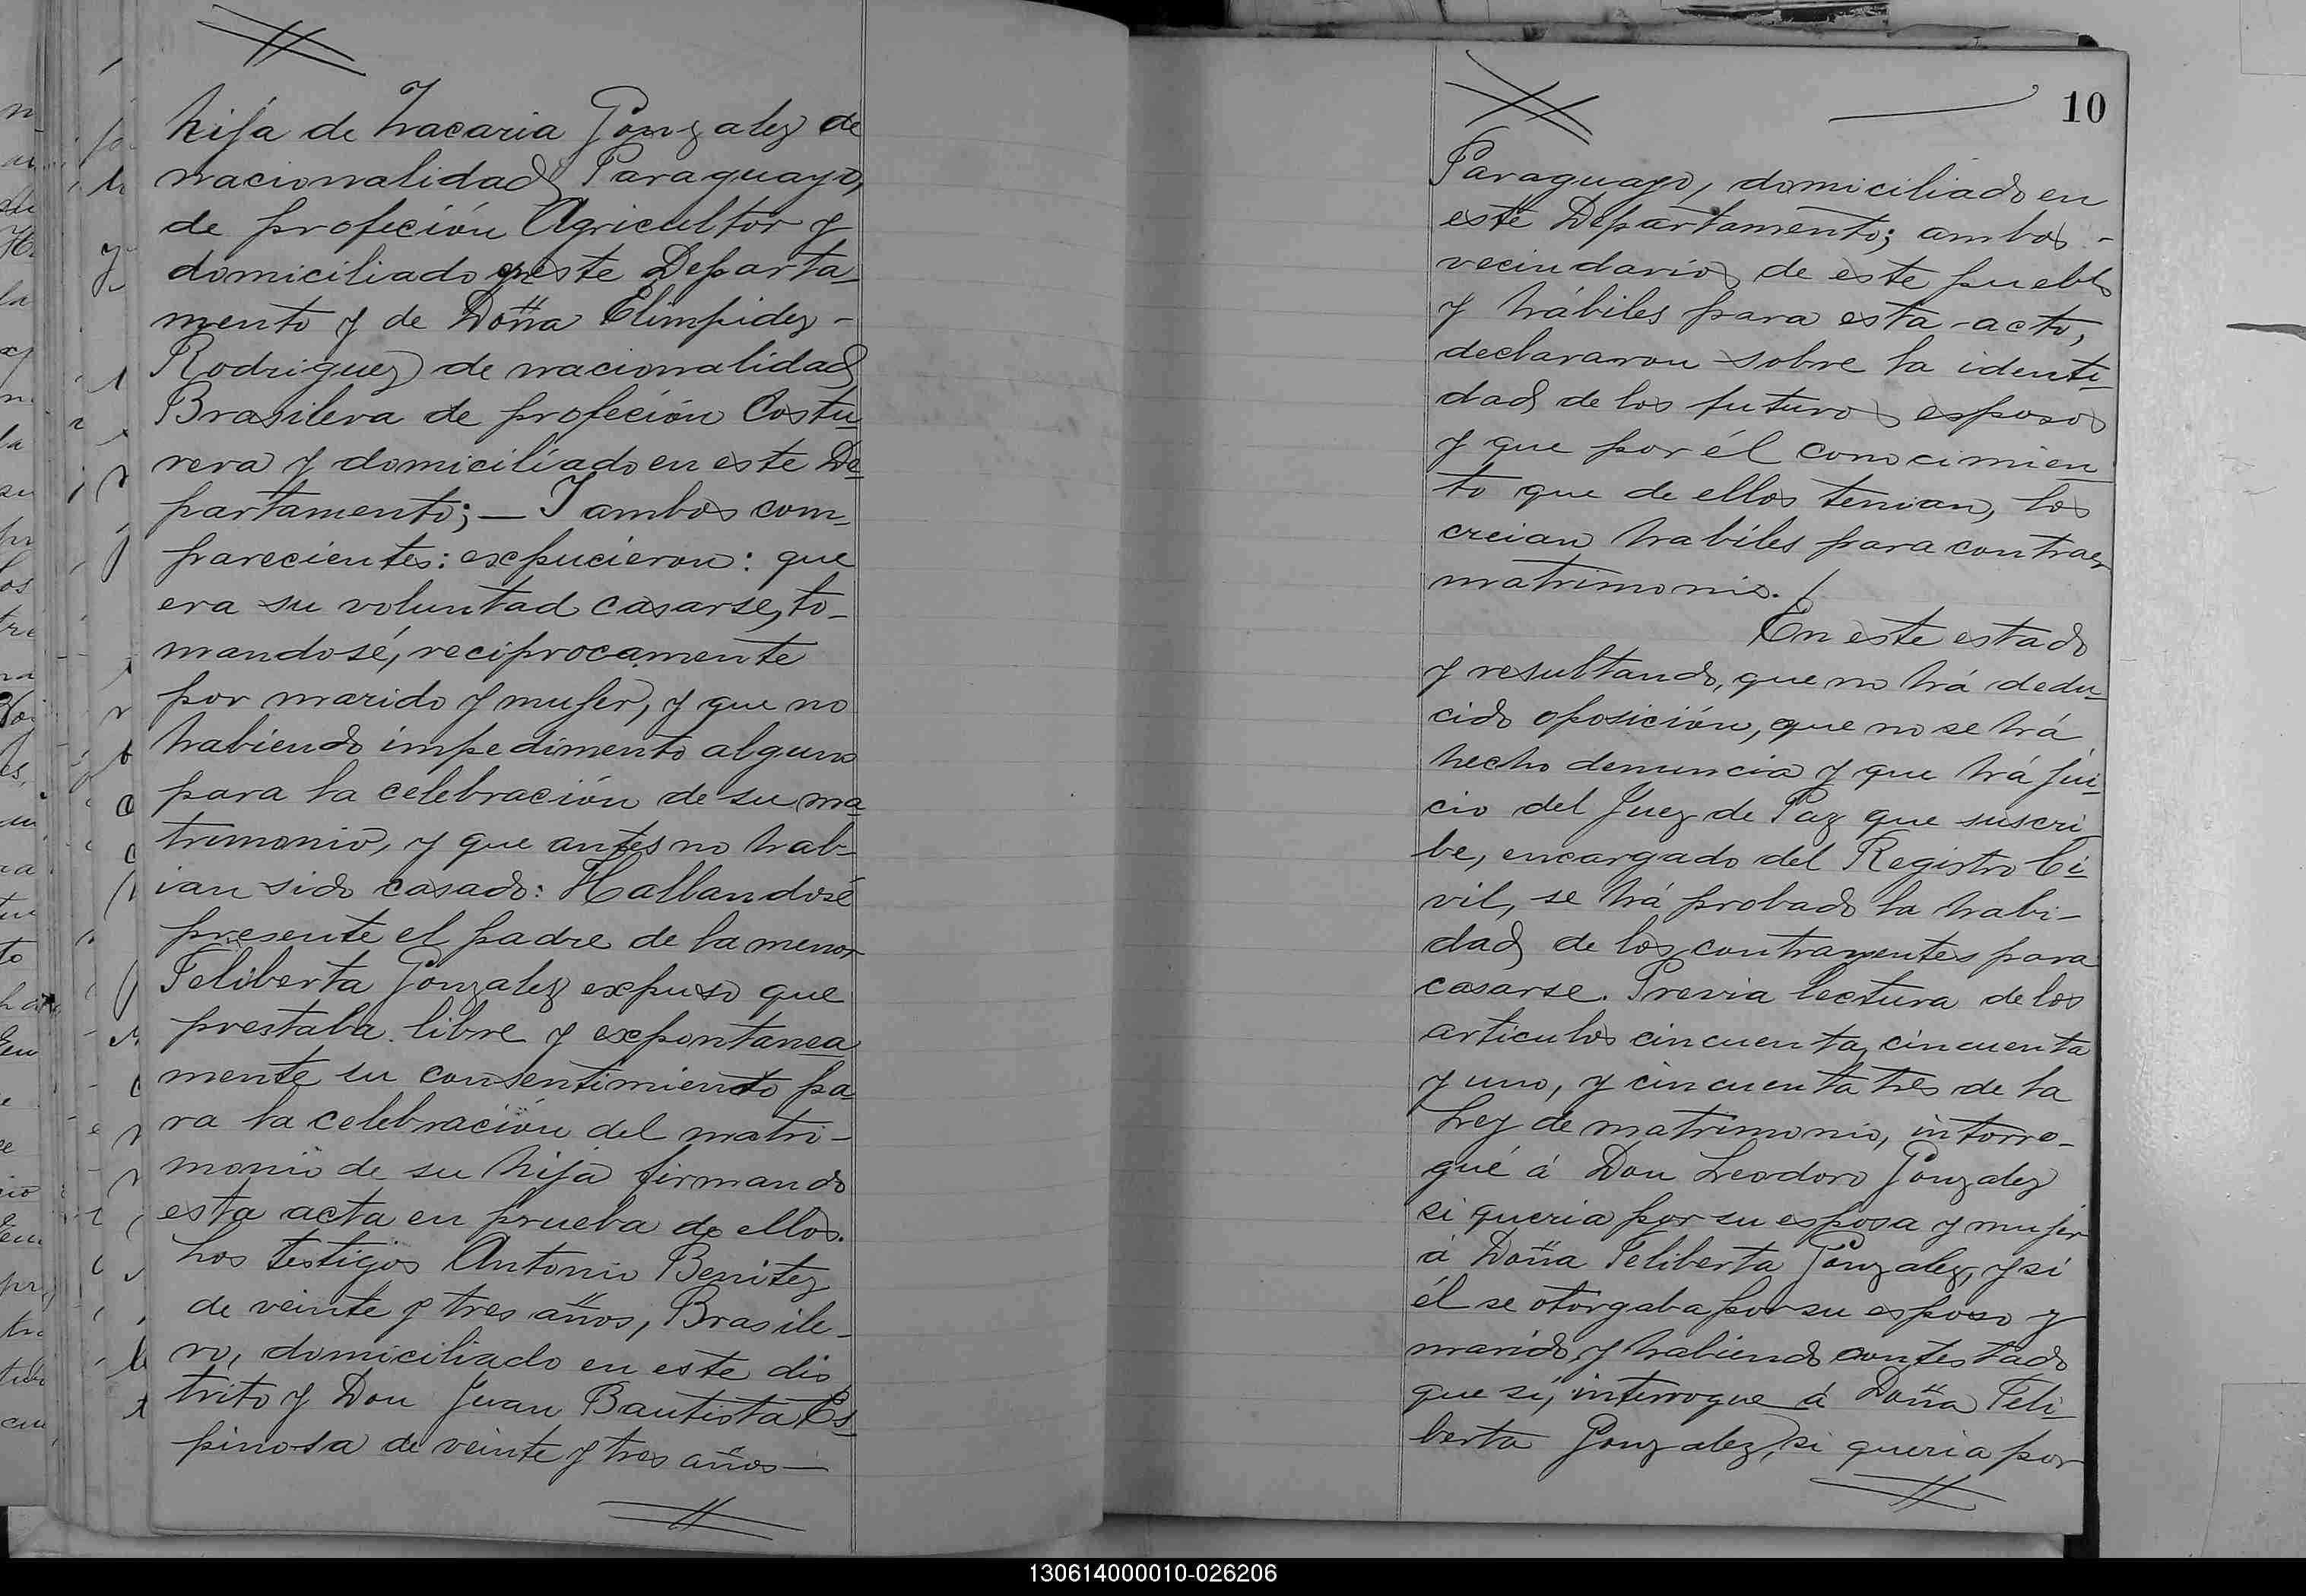 hija de Zacaria Gonzalez de
nacionalidad Paraguayo,
de profeción Agricultor y
domiciliado en este Departa-
mento y de Doña Elimpidez -
Rodriguez de nacionalidad
Brasilera de profeción Costu-
rera y domiciliado en este De-
partamento; — Y ambos com-
parecientes: expucieron: que
era su voluntad casarse, to-
mandosé, reciprocamente
por marido y mujer, y que no
habiendo impedimento alguno
para la celebración de su ma-
trimonio, y que antes no hab-
ian sido casado: Hallandosé
presente el padre de la menor
Feliberta Gonzalez expuso que
prestaba libre y expontanea-
mente su consentimiento pa-
ra la celebración del matri-
monio de su hija firmando
esta acta en prueba de ellos.
Los testigos Antonio Benitez
de veinte y tres años, Brasile-
ro, domiciliado en este dis
trito y Don Juan Bautista Es-
pinosa de veinte y tres años —
10
Paraguayo, domiciliado en
este Departamento; ambos -
vecindarios de este pueblo
y hábiles para esta acto,
declararon sobre la identi-
dad de los futuros esposos
y que por él conocimien-
to que de ellos tenian, los
creian habiles para contraer
matrimonio.
En este estado
y resultando, que no há dedu-
cido oposición, que no se há
hecho denuncia y que há jui-
cio del Juez de Paz que suscri-
be, encargado del Registro Ci-
vil, se há probado la habi-
dad de los contrayentes para
casarse. Previa lectura de los
articulos cincuenta, cincuenta
y uno, y cincuenta tres de la
Ley de matrimonio, intorro-
gué á Don Leodoro Gonzalez
si queria por su esposa y mujer
á Doña Feliberta Gonzalez, y si
él se otorgaba por su esposo y
marido y habiendo contestado
que si, interrogue á Doña Feli-
berta Gonzalez, si queria por
130614000010-026206